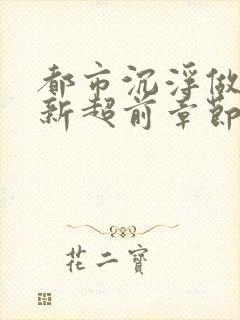 都市沉浮做
新超前章節
花二寶